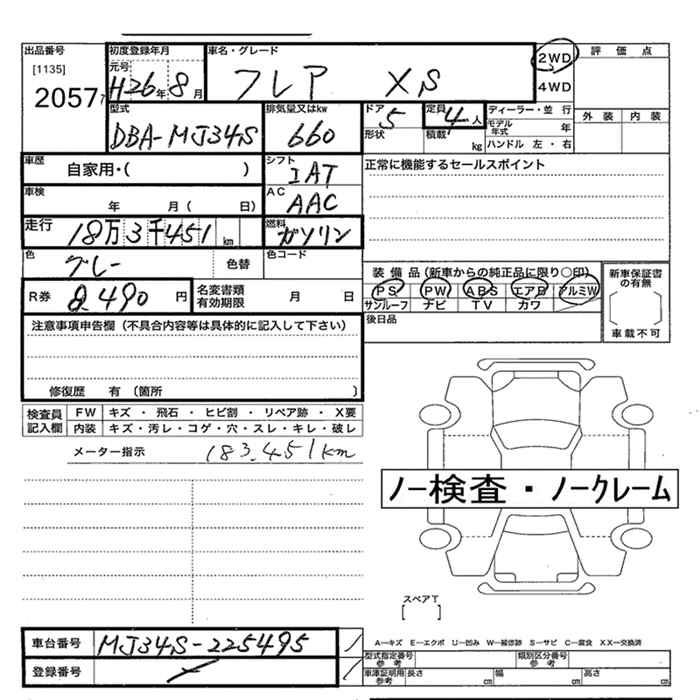 出品番号
[1135]
2057
初度登録年月
元号
H26年8月
車名・グレード
フレア XS
2WD
4WD
評価点
外装 内装
型式
DBA-MJ34S
排気量又はkw
660
ドア
5
形状
定員
4人
積載 kg
ディーラー・並行
モデル年式 年
ハンドル 左・右
車歴
自家用・( )
シフト
IAT
正常に機能するセールスポイント
車検
年 月( 日)
AC
AAC
走行
18万3千451km
燃料
ガソリン
色
グレー
色替
色コード
R券
8,490円
名変書類
有効期限
月 日
装備品(新車からの純正品に限り○印)
PS PW ABS エアB アルミW
サンルーフ ナビ TV カワ
新車保証書
の有無
車載不可
後日品
注意事項申告欄(不具合内容等は具体的に記入して下さい)
修復歴 有(箇所 )
検査員
記入欄
FW キズ・飛石・ヒビ割・リペア跡・X要
内装 キズ・汚レ・コゲ・穴・スレ・キレ・破レ
メーター指示 183,451km
ノー検査・ノークレーム
スペアT
[ ]
A―キズ E―エクボ U―凹み W―補修跡 S―サビ C―腐食 XX―交換済
車台番号 MJ34S-225495
登録番号
型式指定番号
参考
類別区分番号
参考
車庫証明用
参考
長さ cm 幅 cm 高さ cm